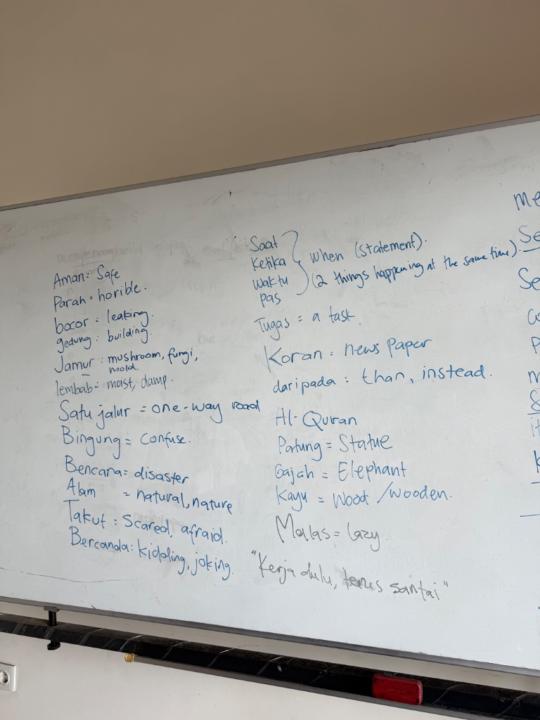 Aman = Safe
Parah = horible.
bocor = leaking.
gedung = building.
Jamur = mushroom, fungi,
mold
lembab = moist, damp.
Satu jalur = one-way road
Bingung = confuse.
Bencana = disaster
Alam = natural, nature
Takut = Scared, afraid.
Bercanda: kidding, joking.
Saat
Ketika
Waktu
pas
when (statement).
(2 things happening at the same time).
Tugas = a task.
Koran = news paper
daripada : than, instead.
Al-Quran
Patung = Statue
Gajah = Elephant
Kayu = Wood / wooden.
Malas = lazy
"Kerja dulu, terus santai"